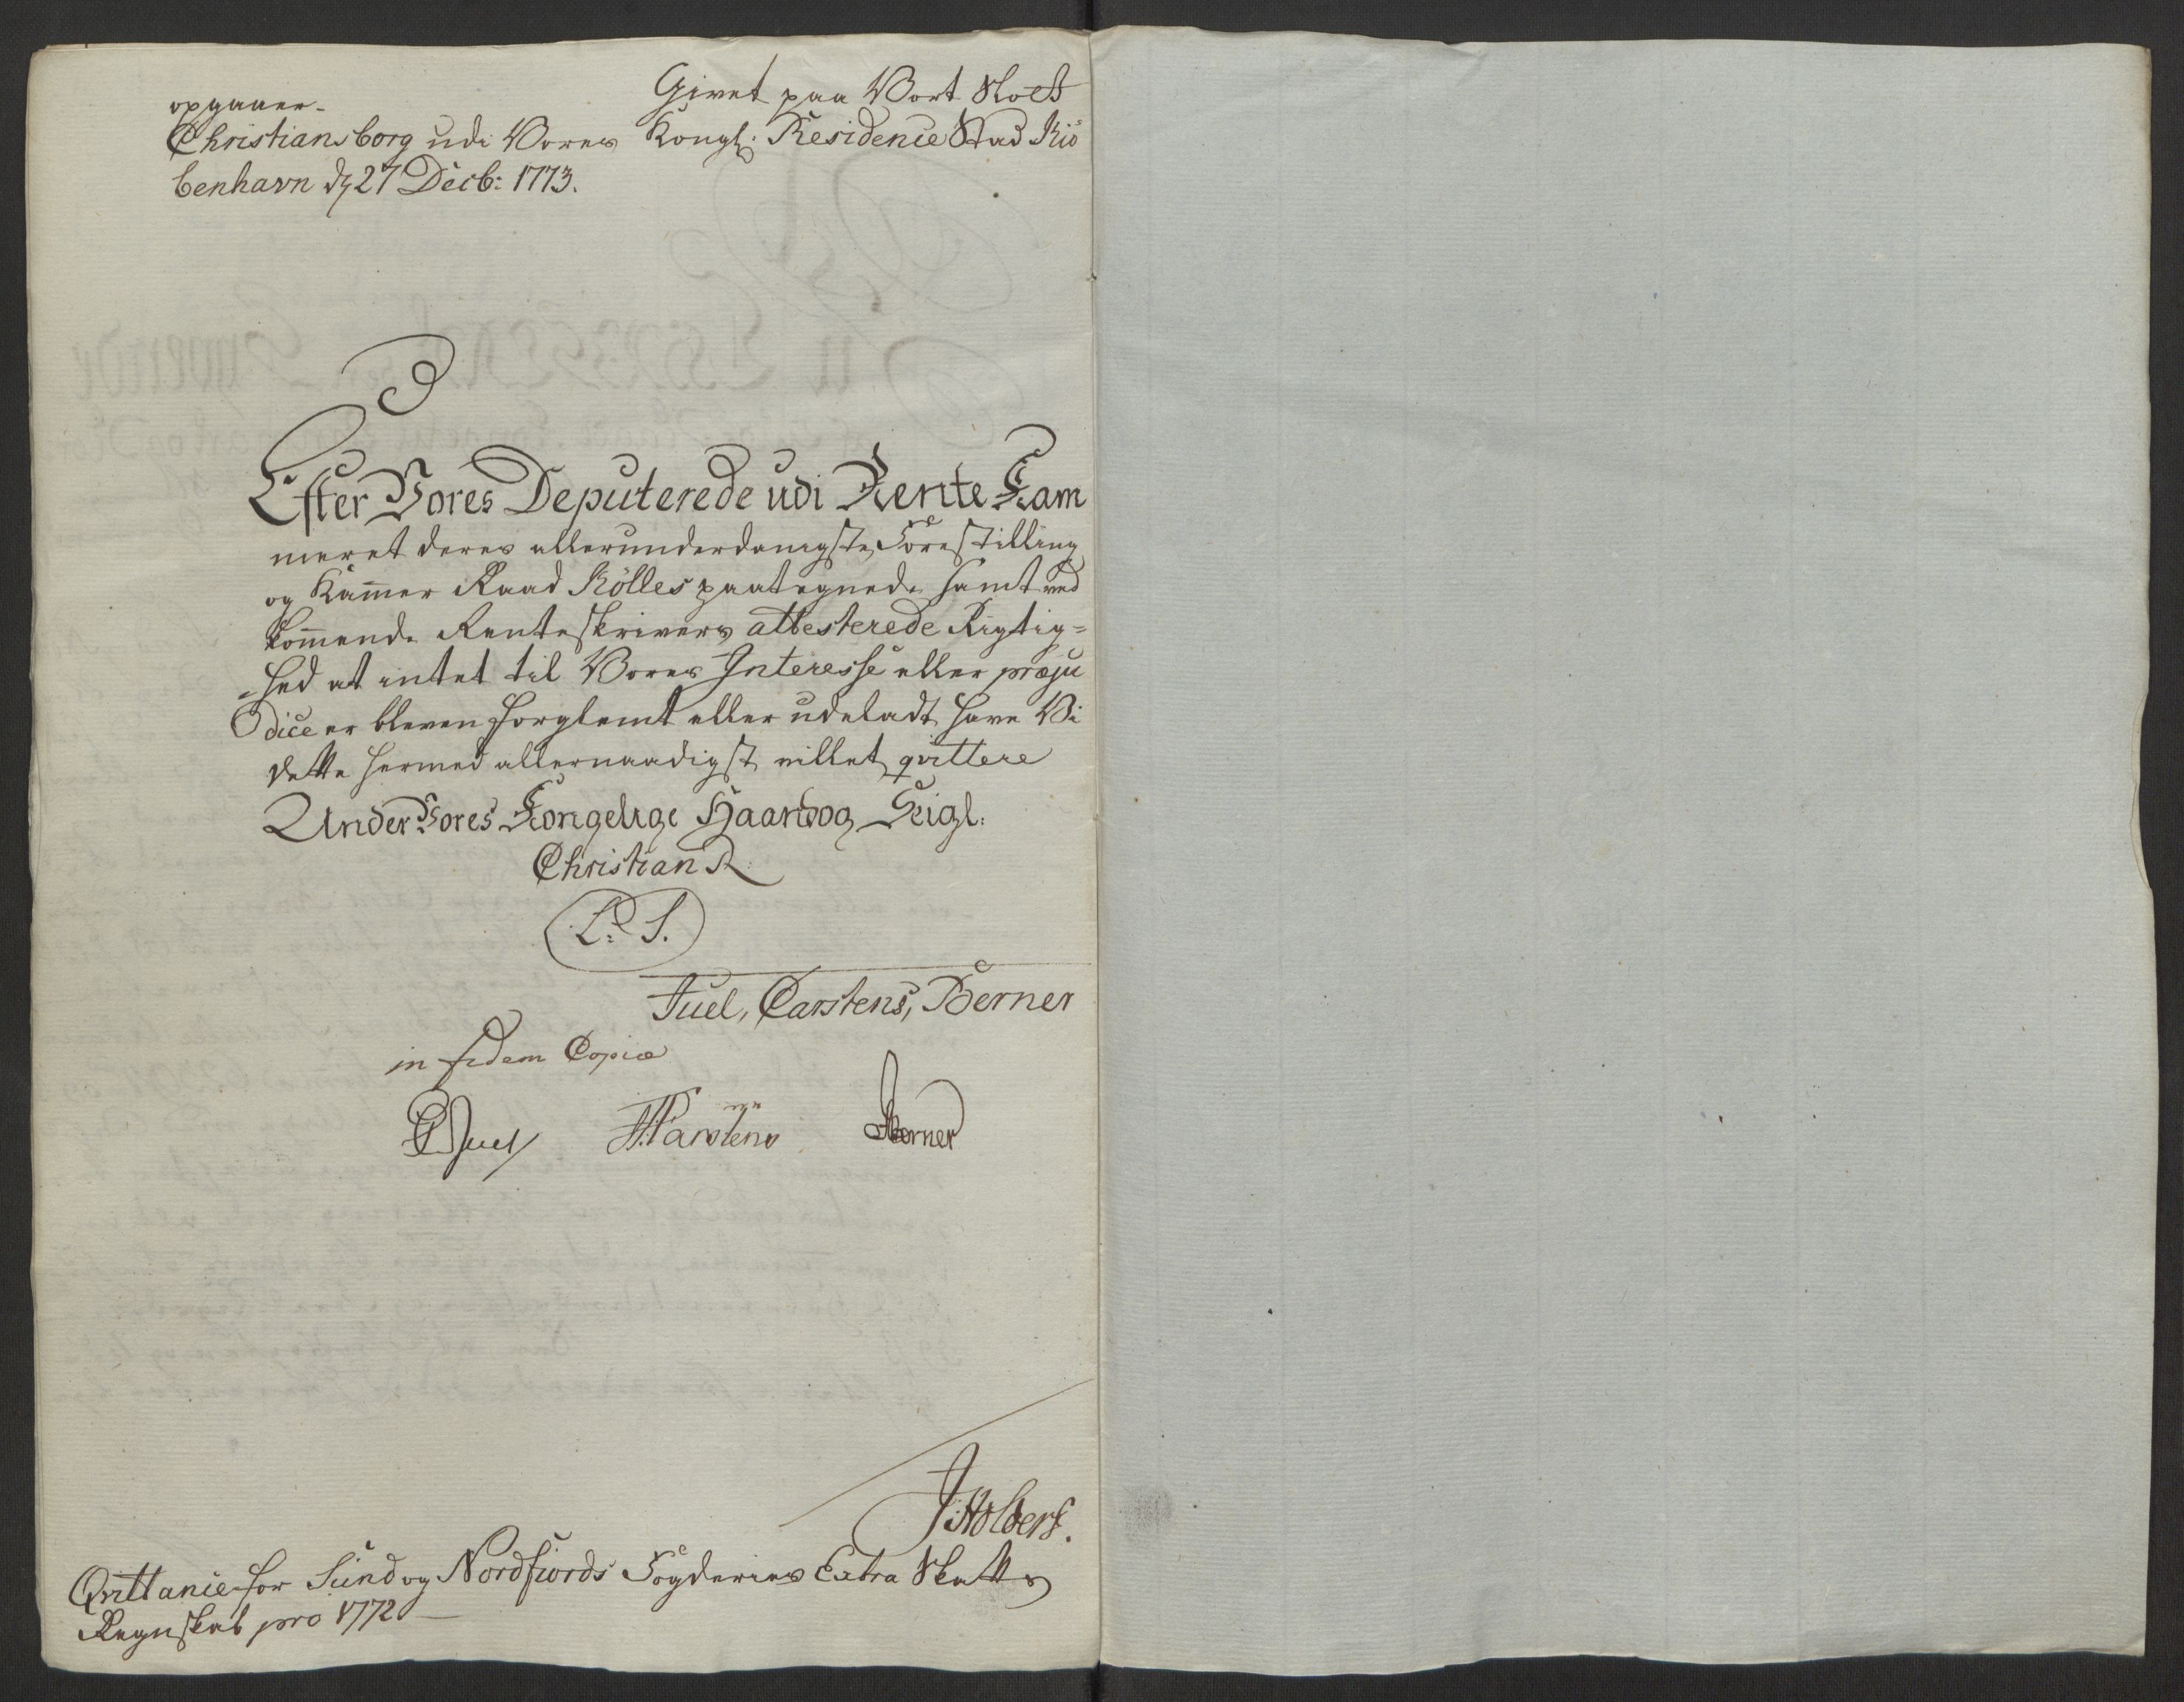 opgaaer. Givet paa Vort Slott
Christiansborg udi Vores Kongl: Residence Stad Kiö
benhavn d 27 Decb: 1773.
Efter Vores Deputerede udi Rente Kam
meret deres allerunderdanigste Forestilling
og Kammer Raad Kölles paategnede samt ved
kommende Renteskrivers attesterede Rigtig=
=hed at intet til Vores Interesse eller præju
dice er bleven forglemt eller udeladt, have Vi
dette hermed allernaadigst villet qvittere
Under Vores Kongelige Haand og Seigl:
Christian R
L: S.
Juel, Carstens, Berner
in fidem Copiæ
Juel Carstens Berner
J Holbert.
Qvittanie for Sund og Nordfiords Fogderies Extra Skatts
Regnskab pro 1772